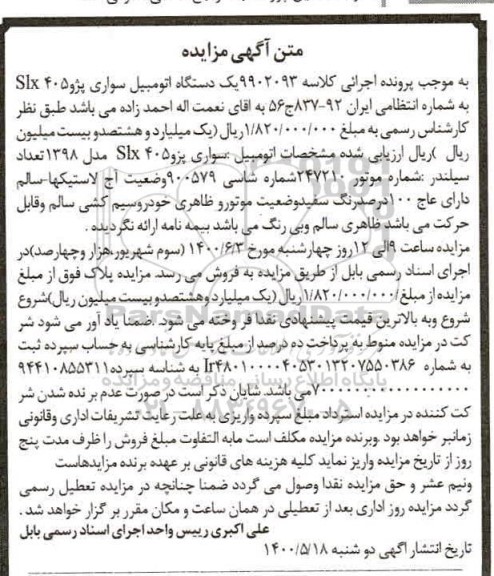 متن آگهی مزایده
به موجب پرونده اجرائی کلاسه ۹۹۰۲۰۹۳یک دستگاه اتومبیل سواری پژو۴۰۵ Slx
به شماره انتظامی ایران ۹۲-۸۳۷ج۵۶ به اقای نعمت اله احمد زاده می باشد طبق نظر
کارشناس رسمی به مبلغ ۱/۸۲۰/۰۰۰/۰۰۰ریال (یک میلیارد و هشتصدو بیست میلیون
ریال )ریال ارزیابی شده مشخصات اتومبیل :سواری پژو۴۰۵ Slx مدل ۱۳۹۸تعداد
سیلندر :شماره موتور ۲۴۷۲۱۰شماره شاسی ۹۰۰۵۷۹وضعیت آج لاستیکها-سالم
دارای عاج ۱۰۰درصدرنگ سفیدوضعیت موتورو ظاهری خودروسیم کشی سالم وقابل
حرکت می باشد ظاهری سالم وبی رنگ می باشد بیمه نامه ارائه نگردیده .
مزایده ساعت ۹الی ۱۲روز چهارشنبه مورخ ۱۴۰۰/۶/۳ (سوم شهریور،هزار وچهارصد)در
اجرای اسناد رسمی بابل از طریق مزایده به فروش می رسد. مزایده پلاک فوق از مبلغ
مزایده از مبلغ ۱/۸۲۰/۰۰۰/۰۰۰ریال (یک میلیارد وهشتصدو بیست میلیون ریال)شروع
شروع وبه بالاترین قیمت پیشنهادی نقدا فر وخته می شود .ضمنا یاد آور می شود شر
کت در مزایده منوط به پرداخت ده درصد از مبلغ پایه کارشناسی به حساب سپرده ثبت
به شماره Ir۴۸۰۱۰۰۰۰۴۰۵۳۰۱۳۲۰۷۵۵۰۳۸۶ به شناسه سپرده۹۴۴۱۰۸۵۵۳۱۱
می باشد. شایان ذکر است در صورت عدم بر نده شدن شر
کت کننده در مزایده استرداد مبلغ سپرده واریزی به علت رعایت تشریفات اداری وقانونی
زمانبر خواهد بود .وبرنده مزایده مکلف است مابه التفاوت مبلغ فروش را ظرف مدت پنج
روز از تاریخ مزایده واریز نماید کلیه هزینه های قانونی بر عهده برنده مزایدهاست
ونیم عشر و حق مزایده نقدا وصول می گردد ضمنا چنانچه در مزایده تعطیل رسمی
گردد مزایده روز اداری بعد از تعطیلی در همان ساعت و مکان مقرر بر گزار خواهد شد .
علی اکبری رییس واحد اجرای اسناد رسمی بابل
تاریخ انتشار اگهی دو شنبه ۱۴۰۰/۵/۱۸